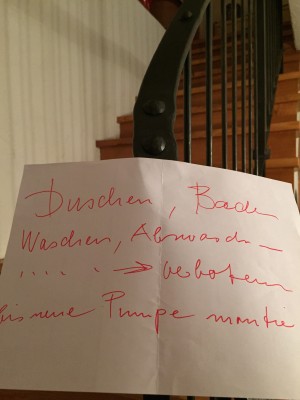 Duschen, Baden
Waschen, Abwasch –
..... → verboten
bis neue Pumpe montie